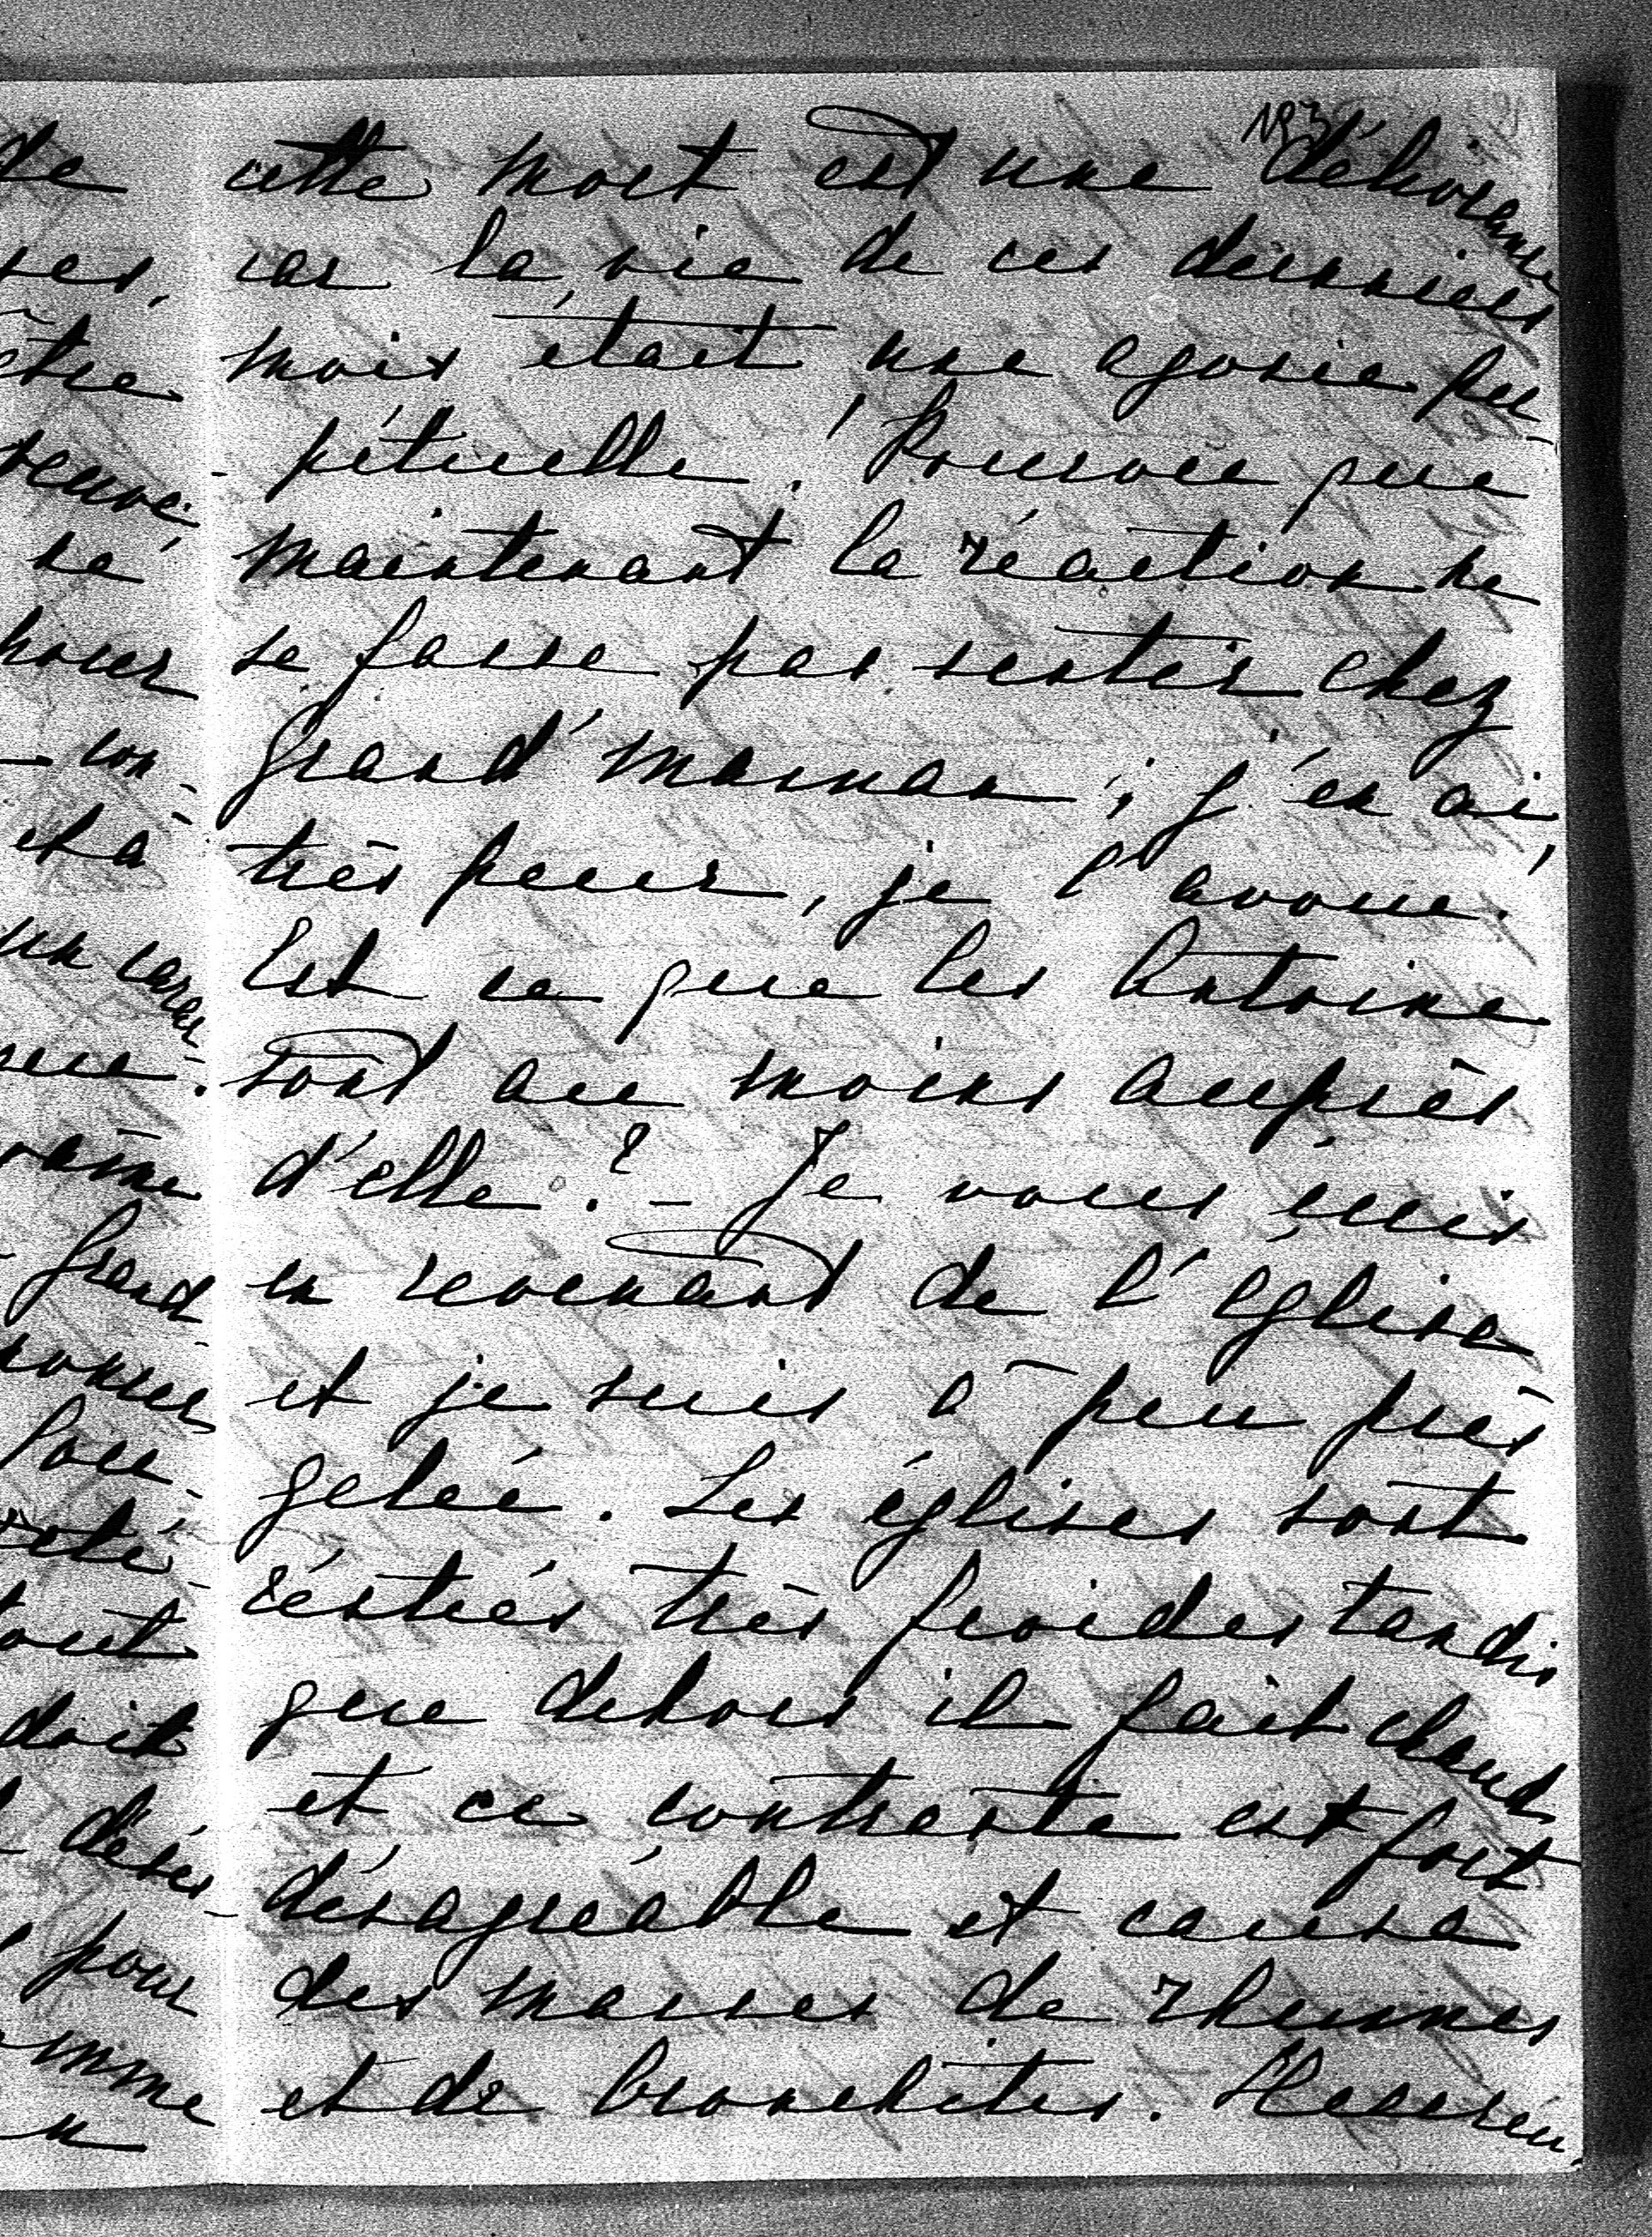 193
cette mort est une délivrance
car la vie de ces derniers
mois était une agonie per-
-pétuelle ! Pourvu que
maintenant la réaction ne
se fasse pas sentir chez
Grand'maman ; j'en ai,
très peur, je l'avoue.
Est ce que les Antoine
sont au moins auprès
d'elle ? - Je vous écris
en revenant de l'église
et je suis à peu près
gelée. Les églises sont
restées très froides tandis
que dehors il fait chaud
et ce contraste est fort
désagréable et cause
des masses de rhumes
et de bronchites. Heureu
de
ses,
être
se
pour
con-
et a
un carac-
Grand
tout
doit
désir
pour